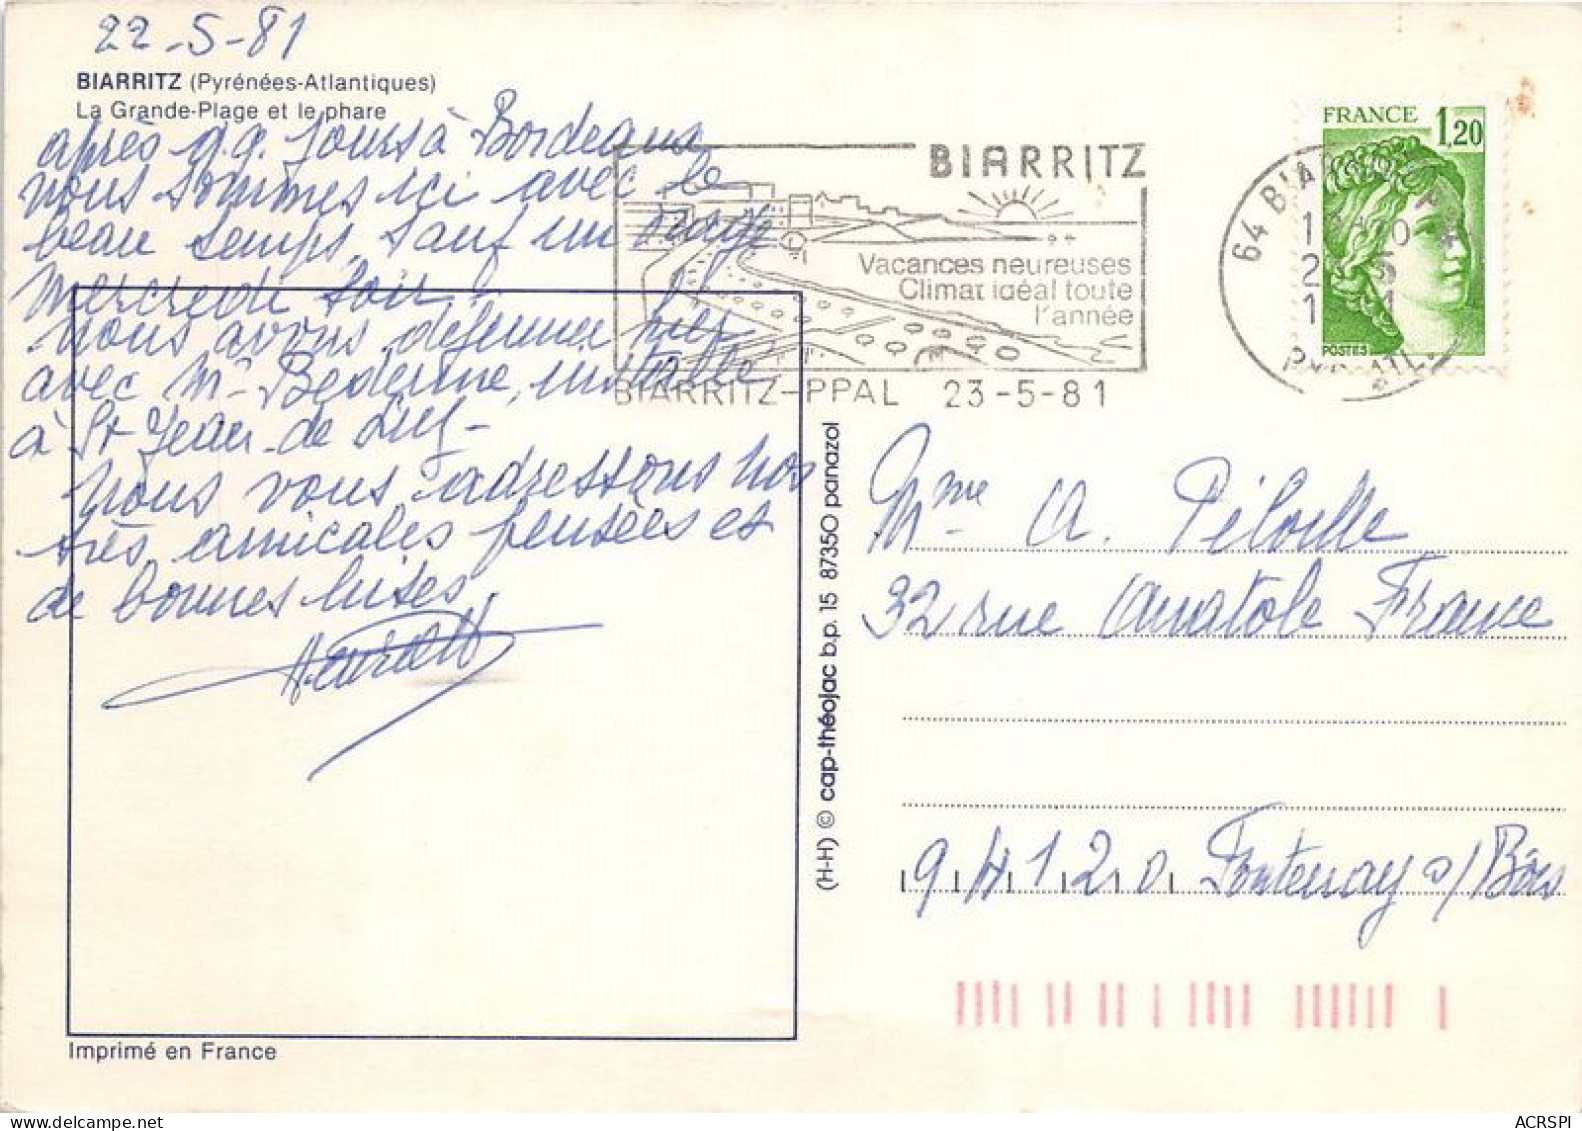 22-5-81
BIARRITZ (Pyrénées-Atlantiques)
La Grande-Plage et le phare
après q.q. jours à Bordeaux
nous sommes ici avec le
beau temps, sauf un orage
mercredi soir.
Nous avons déjeuner hier
avec Mr Bedenne, installé
à St Jean-de Luz-
Nous vous adressons nos
très amicales pensées et
de bonnes bises
BIARRITZ
Vacances heureuses
Climat idéal toute
l'année
BIARRITZ-PPAL 23-5-81
FRANCE 1,20
POSTES
64 BIARRITZ
Mme A. Péloille
32 rue Anatole France
94120 Fontenay s/Bois
(H-H) © cap-théojac b.p. 15 87350 panazol
Imprimé en France
ACRSPI